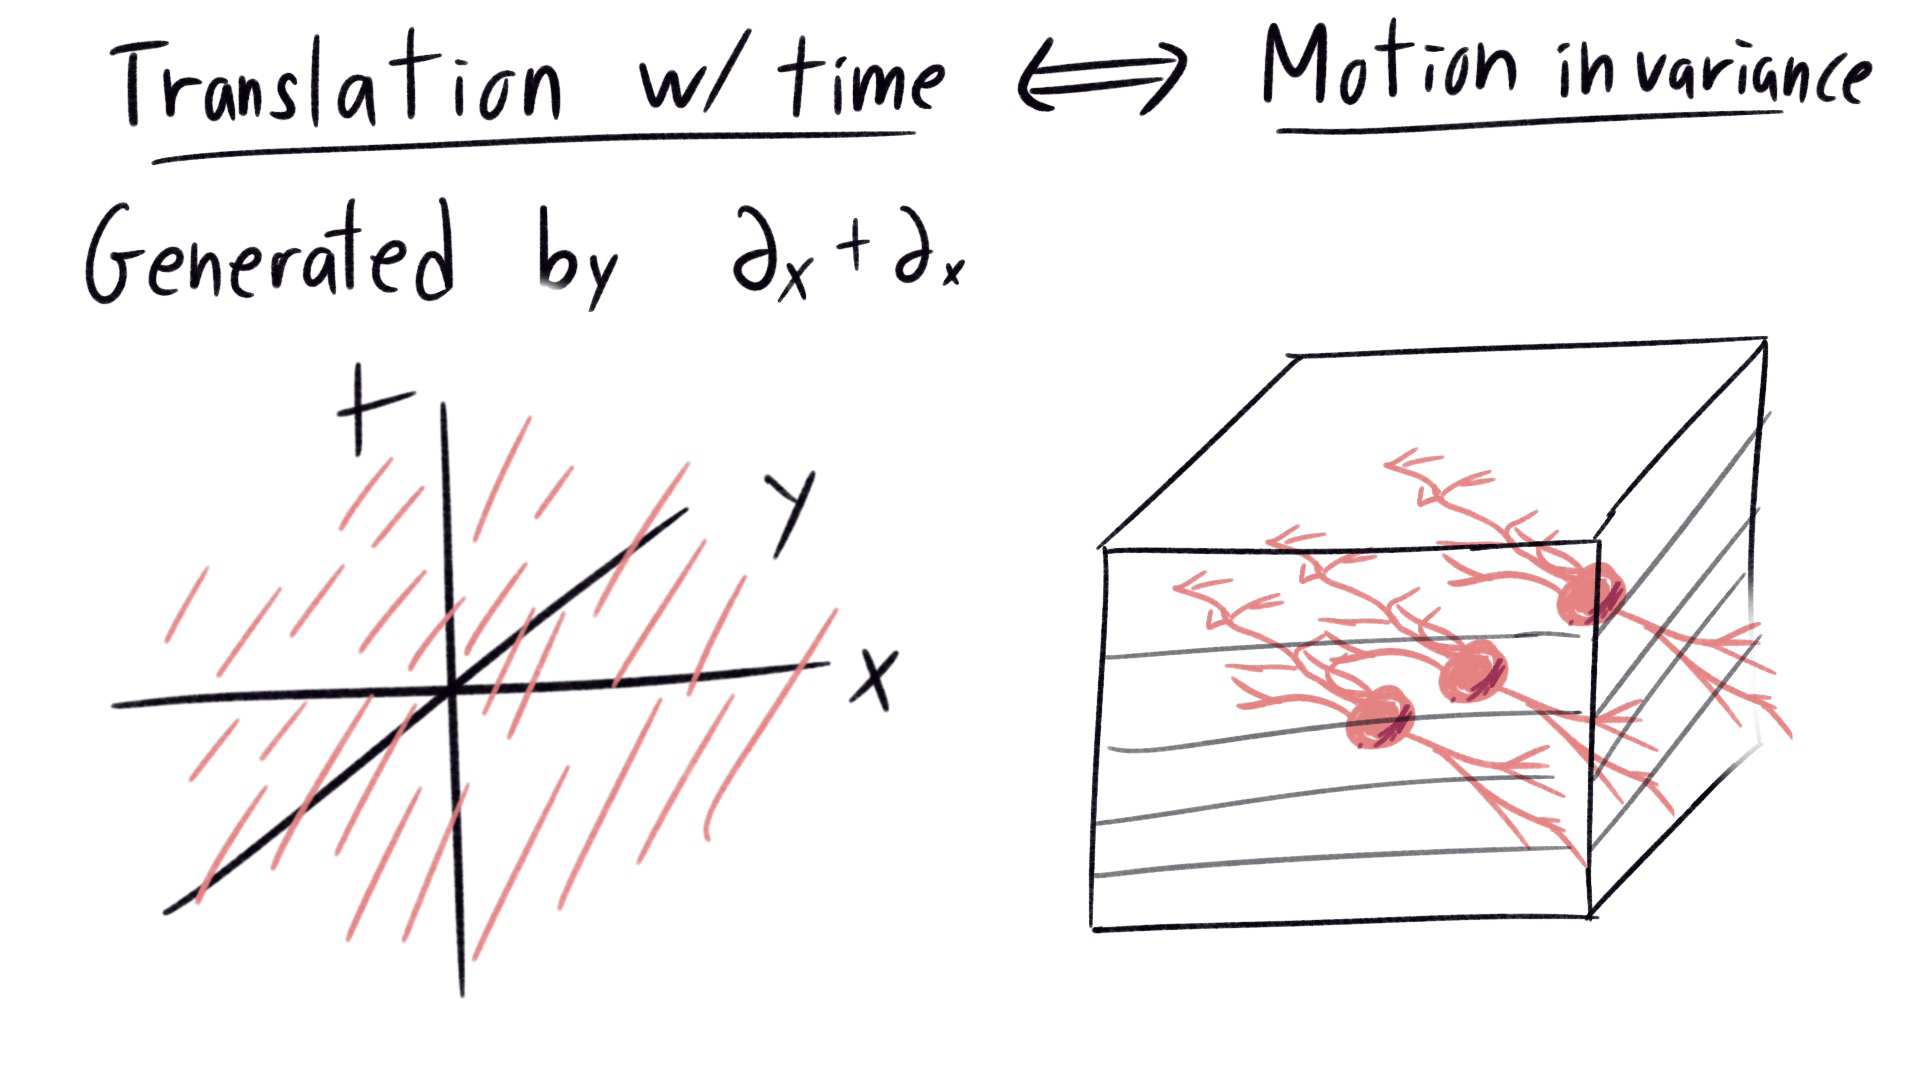 Translation w/ time ⟺ Motion invariance
Generated by ∂x + ∂x
t
y
x